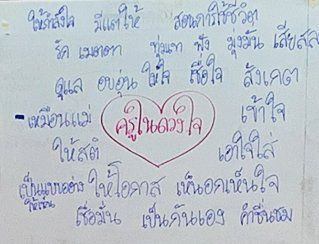 ให้กำลังใจ มีแต่ให้ สอนการใช้ชีวิต
รัก เมตตา ทุ่มเท ฟัง มุ่งมั่น เสียสละ
ดูแล อบอุ่น ให้ใจ เชื่อใจ สังเกต
- เหมือนแม่ เข้าใจ
ครูในดวงใจ
ให้สติ เอาใจใส่
เป็นแบบอย่าง ให้โอกาส เห็นอกเห็นใจ
เชื่อมั่น เป็นกันเอง คำชื่นชม